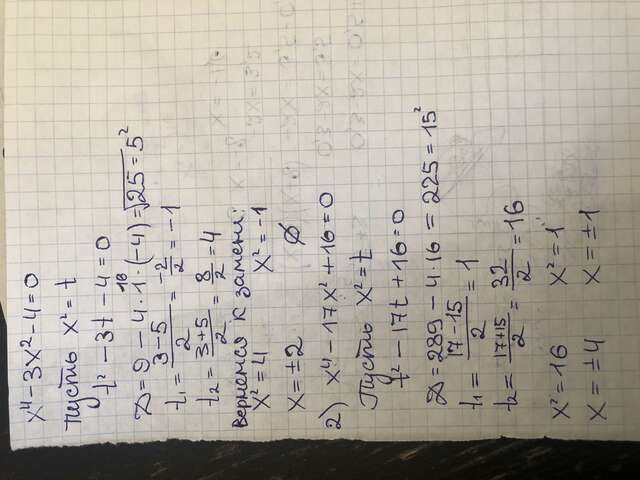 x⁴-3x²-4=0
Пусть x²=t
t²-3t-4=0
D=9-4·1·(-4)=√25=5²
t₁=(3-5)/2=-2/2=-1
t₂=(3+5)/2=8/2=4
Вернемся к замене:
x²=4 x²=-1
x=±2 ∅
2) x⁴-17x²+16=0
Пусть x²=t
t²-17t+16=0
D=289-4·16=225=15²
t₁=(17-15)/2=1
t₂=(17+15)/2=32/2=16
x²=16 x²=1
x=±4 x=±1